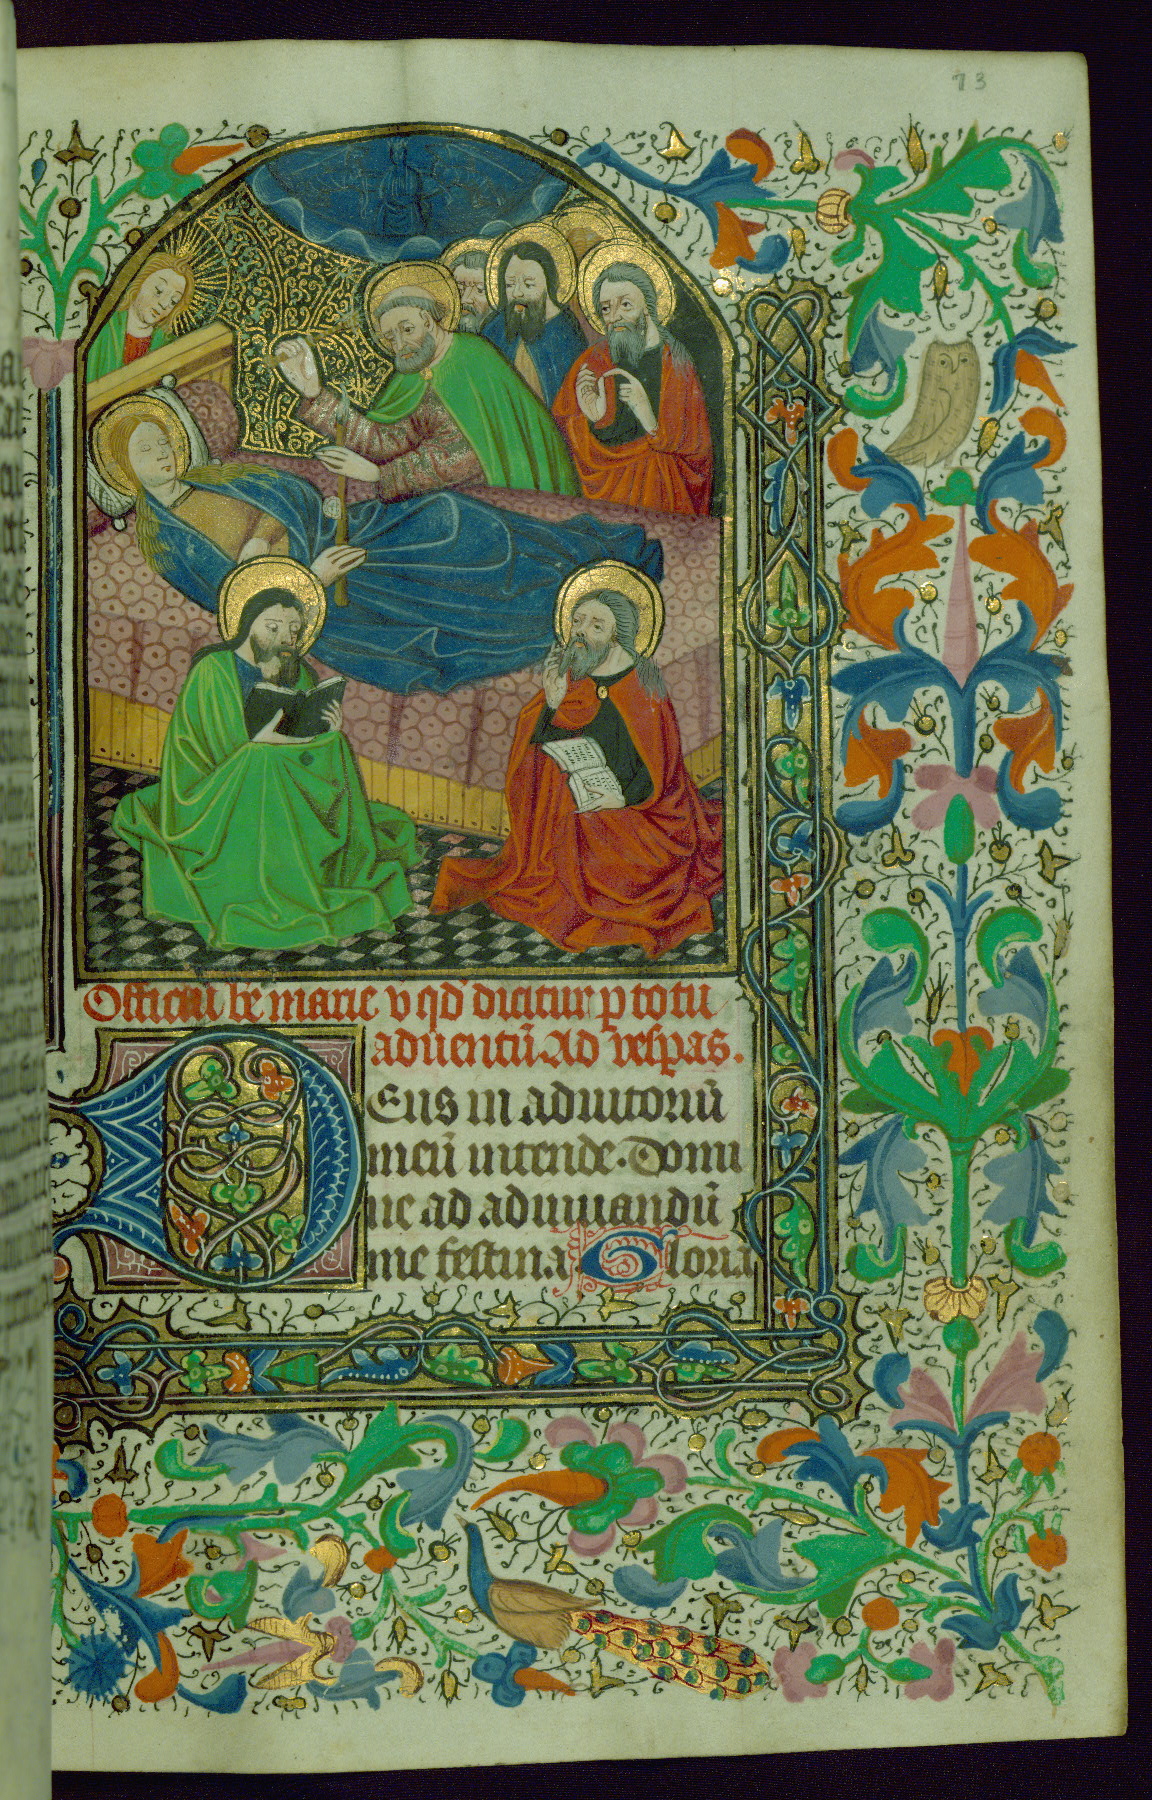 73
Officiū bē marie v̄ qd̄ dicitur p totū
aduentū. Ad vesp̄as.
DEus in adiutoriū
meū intende. Domi
ne ad adiuuandū
me festina Gloria